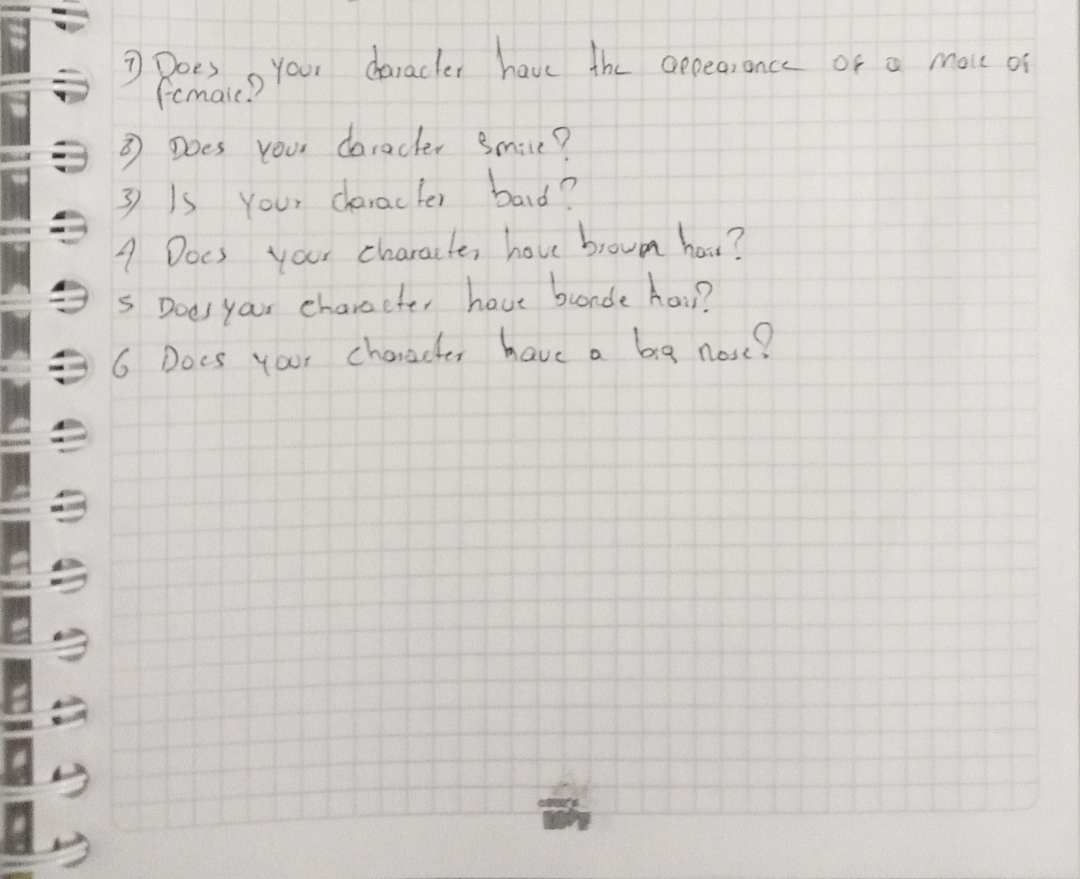 1) Does your character have the appearance of a male or
female?
2) Does your character smile?
3) Is your character bald?
4 Does your character have brown hair?
5 Does your character have blonde hair?
6 Does your character have a big nose?